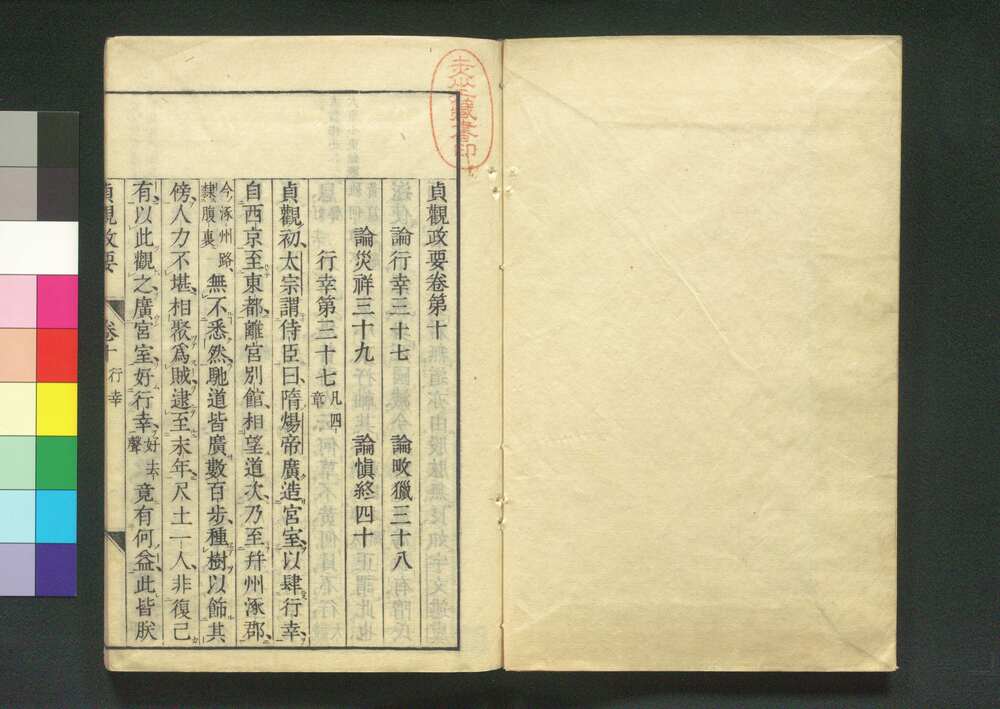 貞觀政要卷第十
論行幸三十七 論畋獵三十八
論災祥三十九 論愼終四十
行幸第三十七 凡四章
貞觀初太宗謂侍臣曰隋煬帝廣造宮室以肆行幸
自西京至東都離宮別館相望道次乃至幷州涿郡
今涿州路隸腹裏無不悉然馳道皆廣數百步種樹以飾其
傍人力不堪相聚爲賊逮至末年尺土一人非復己
有以此觀之廣宮室好行幸好去聲竟有何益此皆朕
貞觀政要 卷十 行幸
藏書印